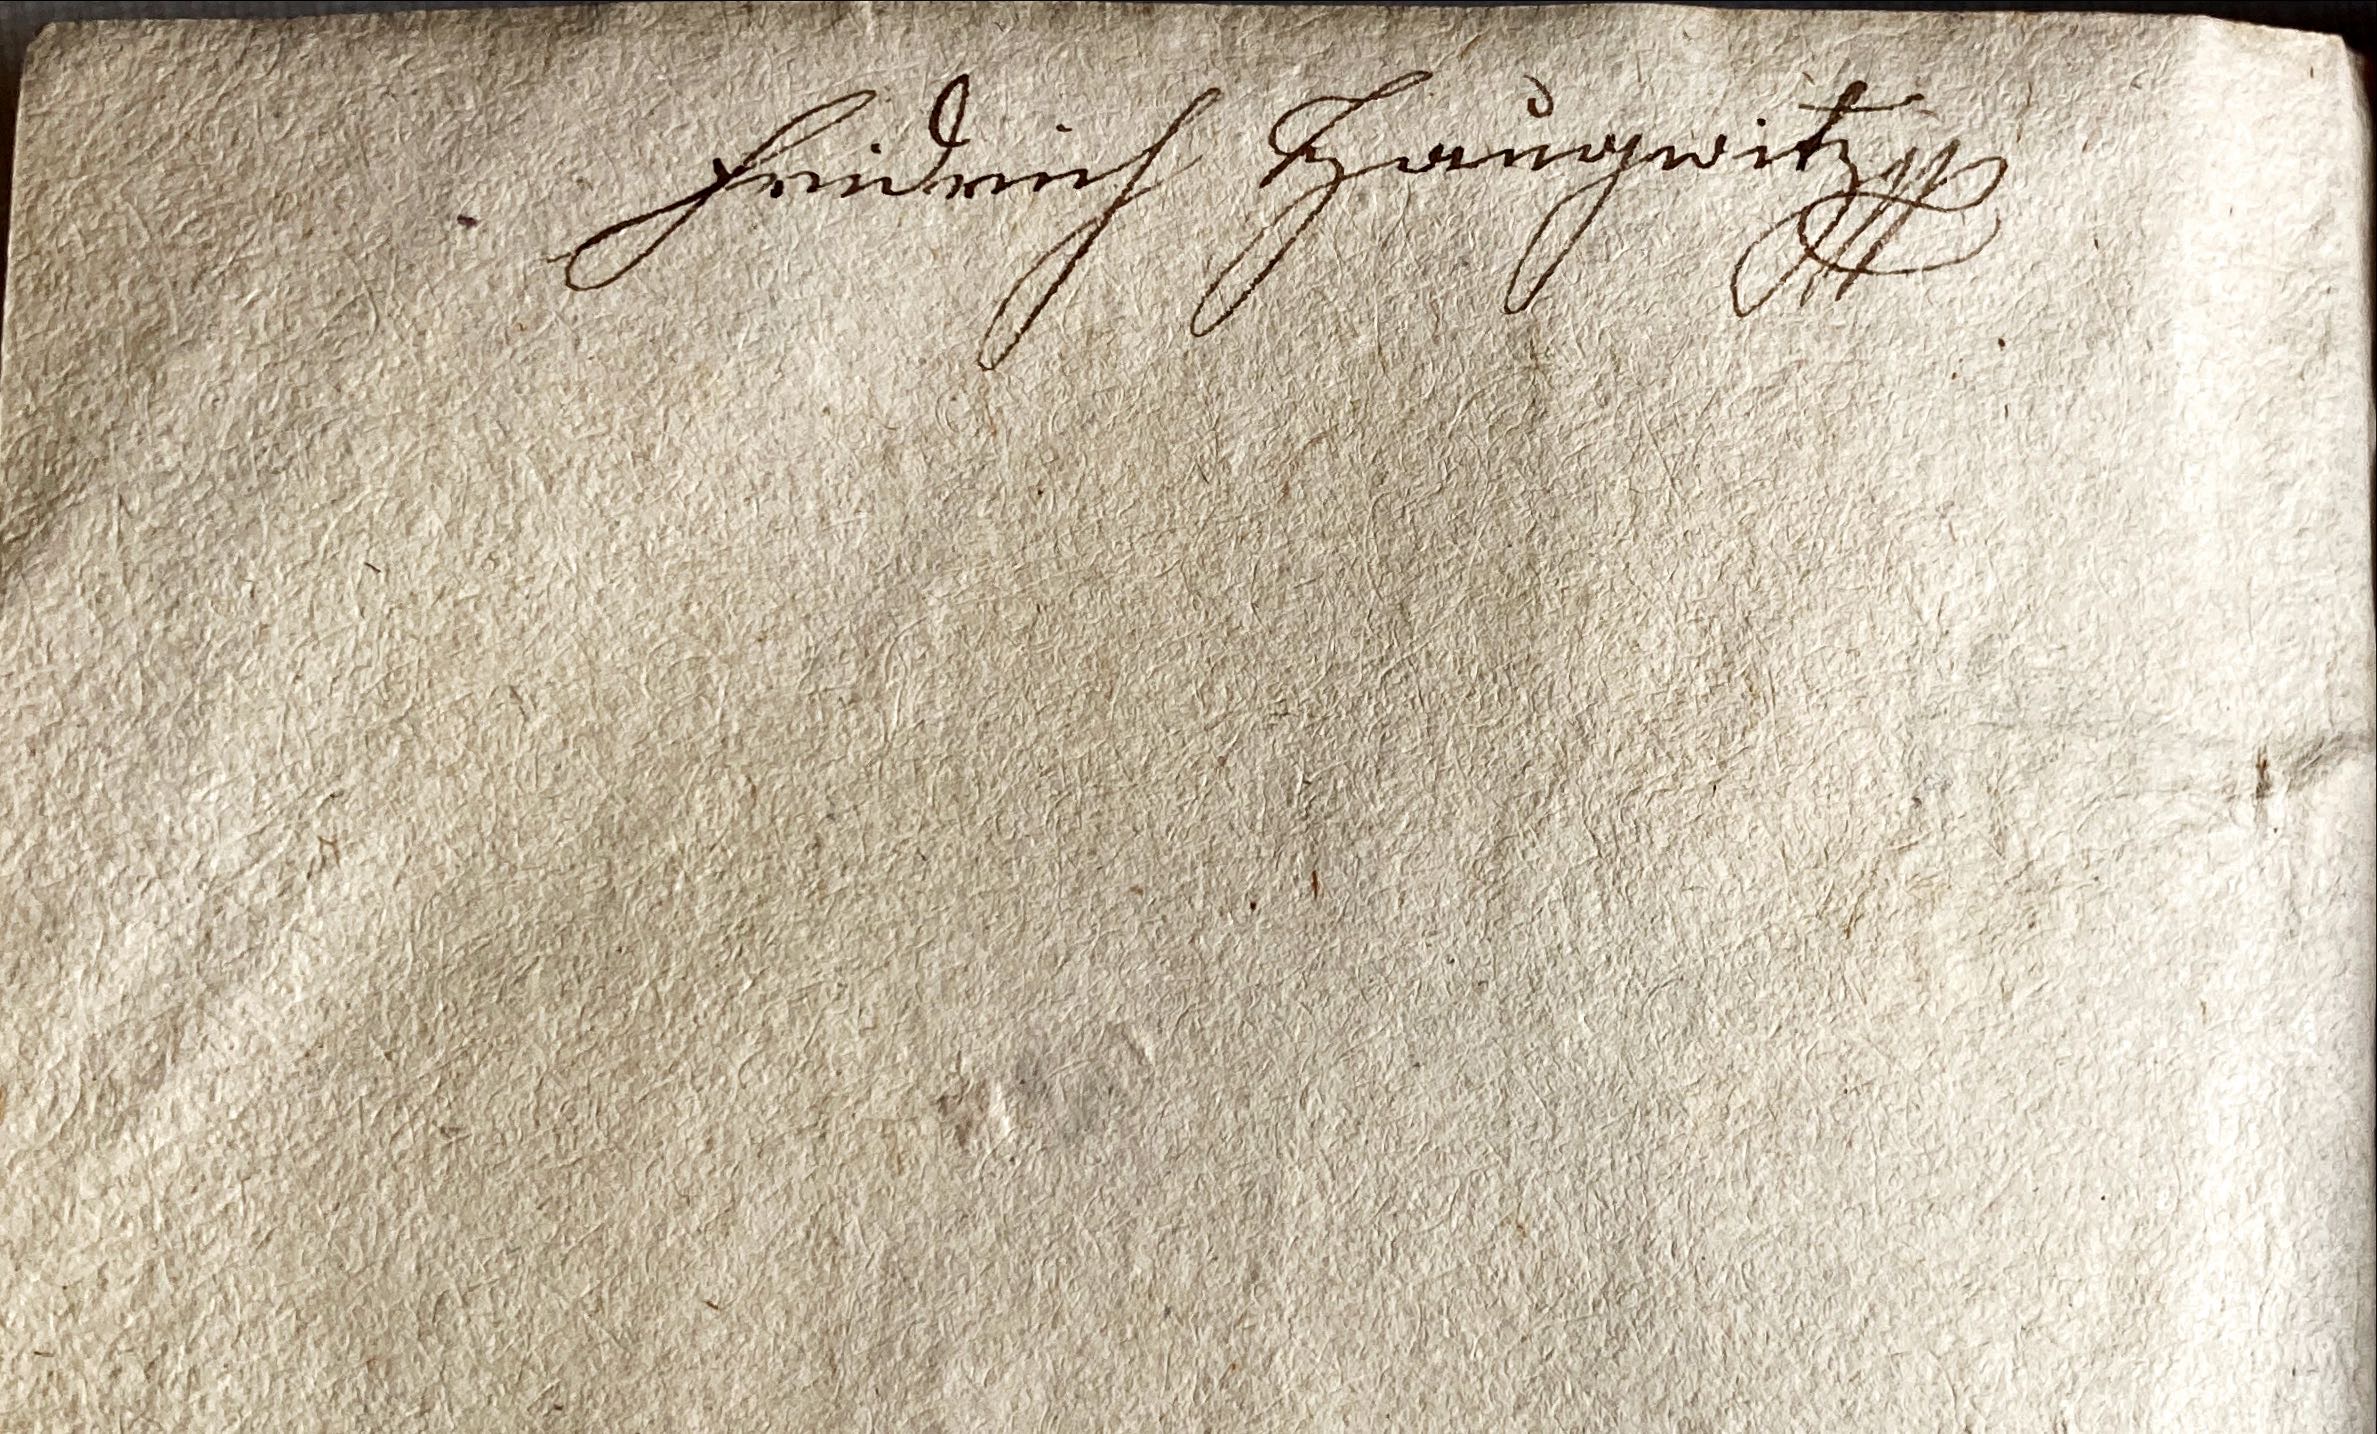 Friedrich Haugwitz